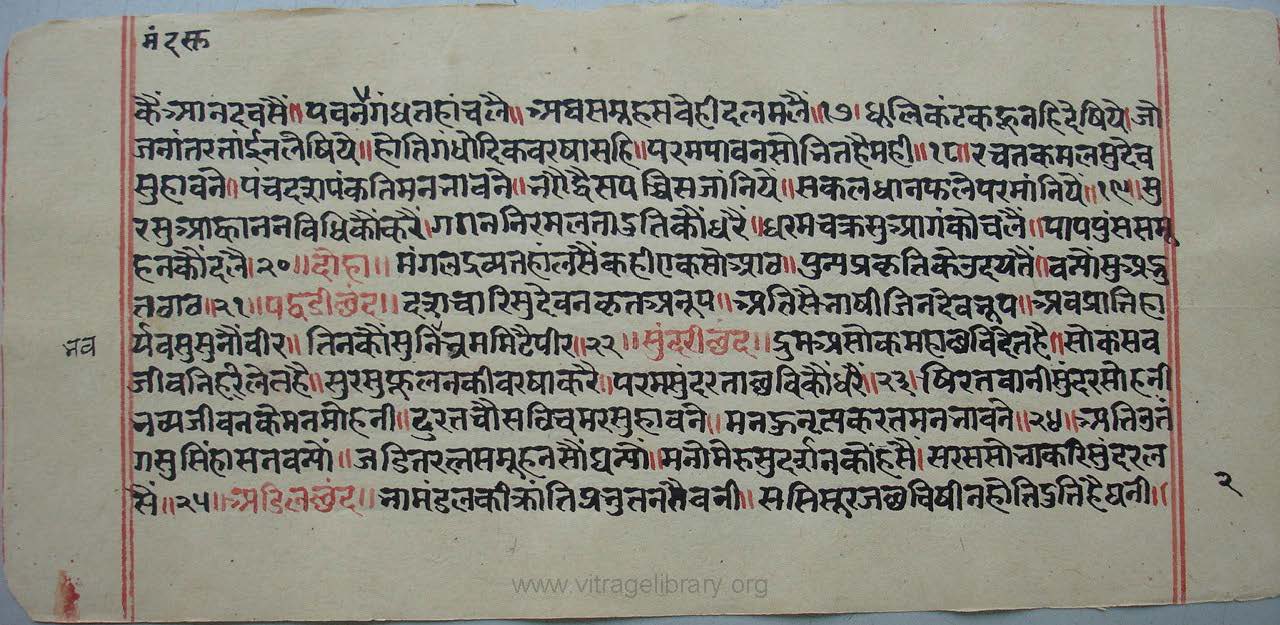 मंदक्त
कैंआनदवसैं॥पवनैगंधतहांचलै॥अघसमूहसवैहीदलमलैं॥१७॥धूलिकंटकहूनहिदेषिये।जौ
जनांतरतांईनलैषियै॥होतिगंधौदिकवरषासहि॥परमपावनसोभितहैमही॥१८॥रचतकमलसुदेव
सुहावनै॥पंचदशपंकतिमनभावनै॥भएद्वैसपच्चिसजांनियें॥सकलधानफलैपरमांनियैं॥१९॥सु
रसुआह्वाननविधिकौंकरैं।गगननिरमलताद्युतिकौंधरैं॥धरमचक्रसुआगंकौचलैं॥पापपुंससमू
हनकौंदलै।२०॥दोहा॥मंगलद्रव्यतहांलसैंकहीएकसोआठ॥पुन्यप्रकृतिकेउदयतैं॥वन्यौंसुअद्भु
तठाठ॥२१॥पद्धडीछंद॥दशचारिसुदेवनकृतअनूप॥अतिसैभाषीजिनदेवभूप॥अवप्रातिहा
र्यवसुसुनौंवीर॥तिनकौंसुनिंभ्रममिटैपीर॥२२॥सुंदरीछंद॥द्रुमअसोकमहाछविदेतहै॥सोकसव
जीवनिहरिलेतहै॥सुरसुफूलनकीवरषाकरै॥परमसुंदरताछविकौंधरैं॥२३॥षिरतवानीसुंदरसोहनी
भव्यजीवनकैमनमोहनी॥ढुरतचौसठिचमरसुहावनै॥मनहुनृत्यकरतमनभावनै॥२४॥अतिउतं
गसुसिंहासनवन्यौं॥जडितरत्नसमूहनसौंघन्यौं॥मनौमेरुसुदर्शनकौंहसैं॥सरससोभाकरिसुंदरल
सैं॥२५॥अडिलछंद॥भामंडलकीक्रांतिप्रभुतनतैवनी॥ससिसूरजछविषीनहौतिदुतिहैघनी॥
भव
२
www.vitragelibrary.org